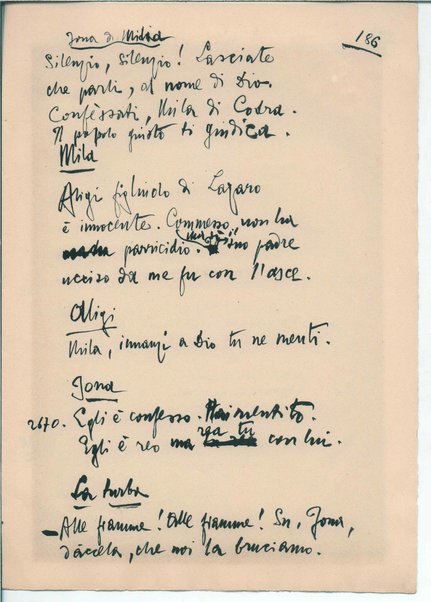 186
Jona di Midia
Silenzio, silenzio! Lasciate
che parli, al nome di Dio.
Confessati, Mila di Codra.
Il popolo giusto ti giudica.
Mila
Aligi figliuolo di Lazaro
è innocente. Commesso non ha
parricidio. ma il suo padre
ucciso da me fu con l'asce.
Aligi
Mila, innanzi a Dio tu ne menti.
Jona
2670. Egli è confesso. Hai mentito.
Egli è reo ma rea tu con lui.
La turba
– Alle fiamme! Alle fiamme! Su, Jona,
dàccela, che noi la bruciamo.